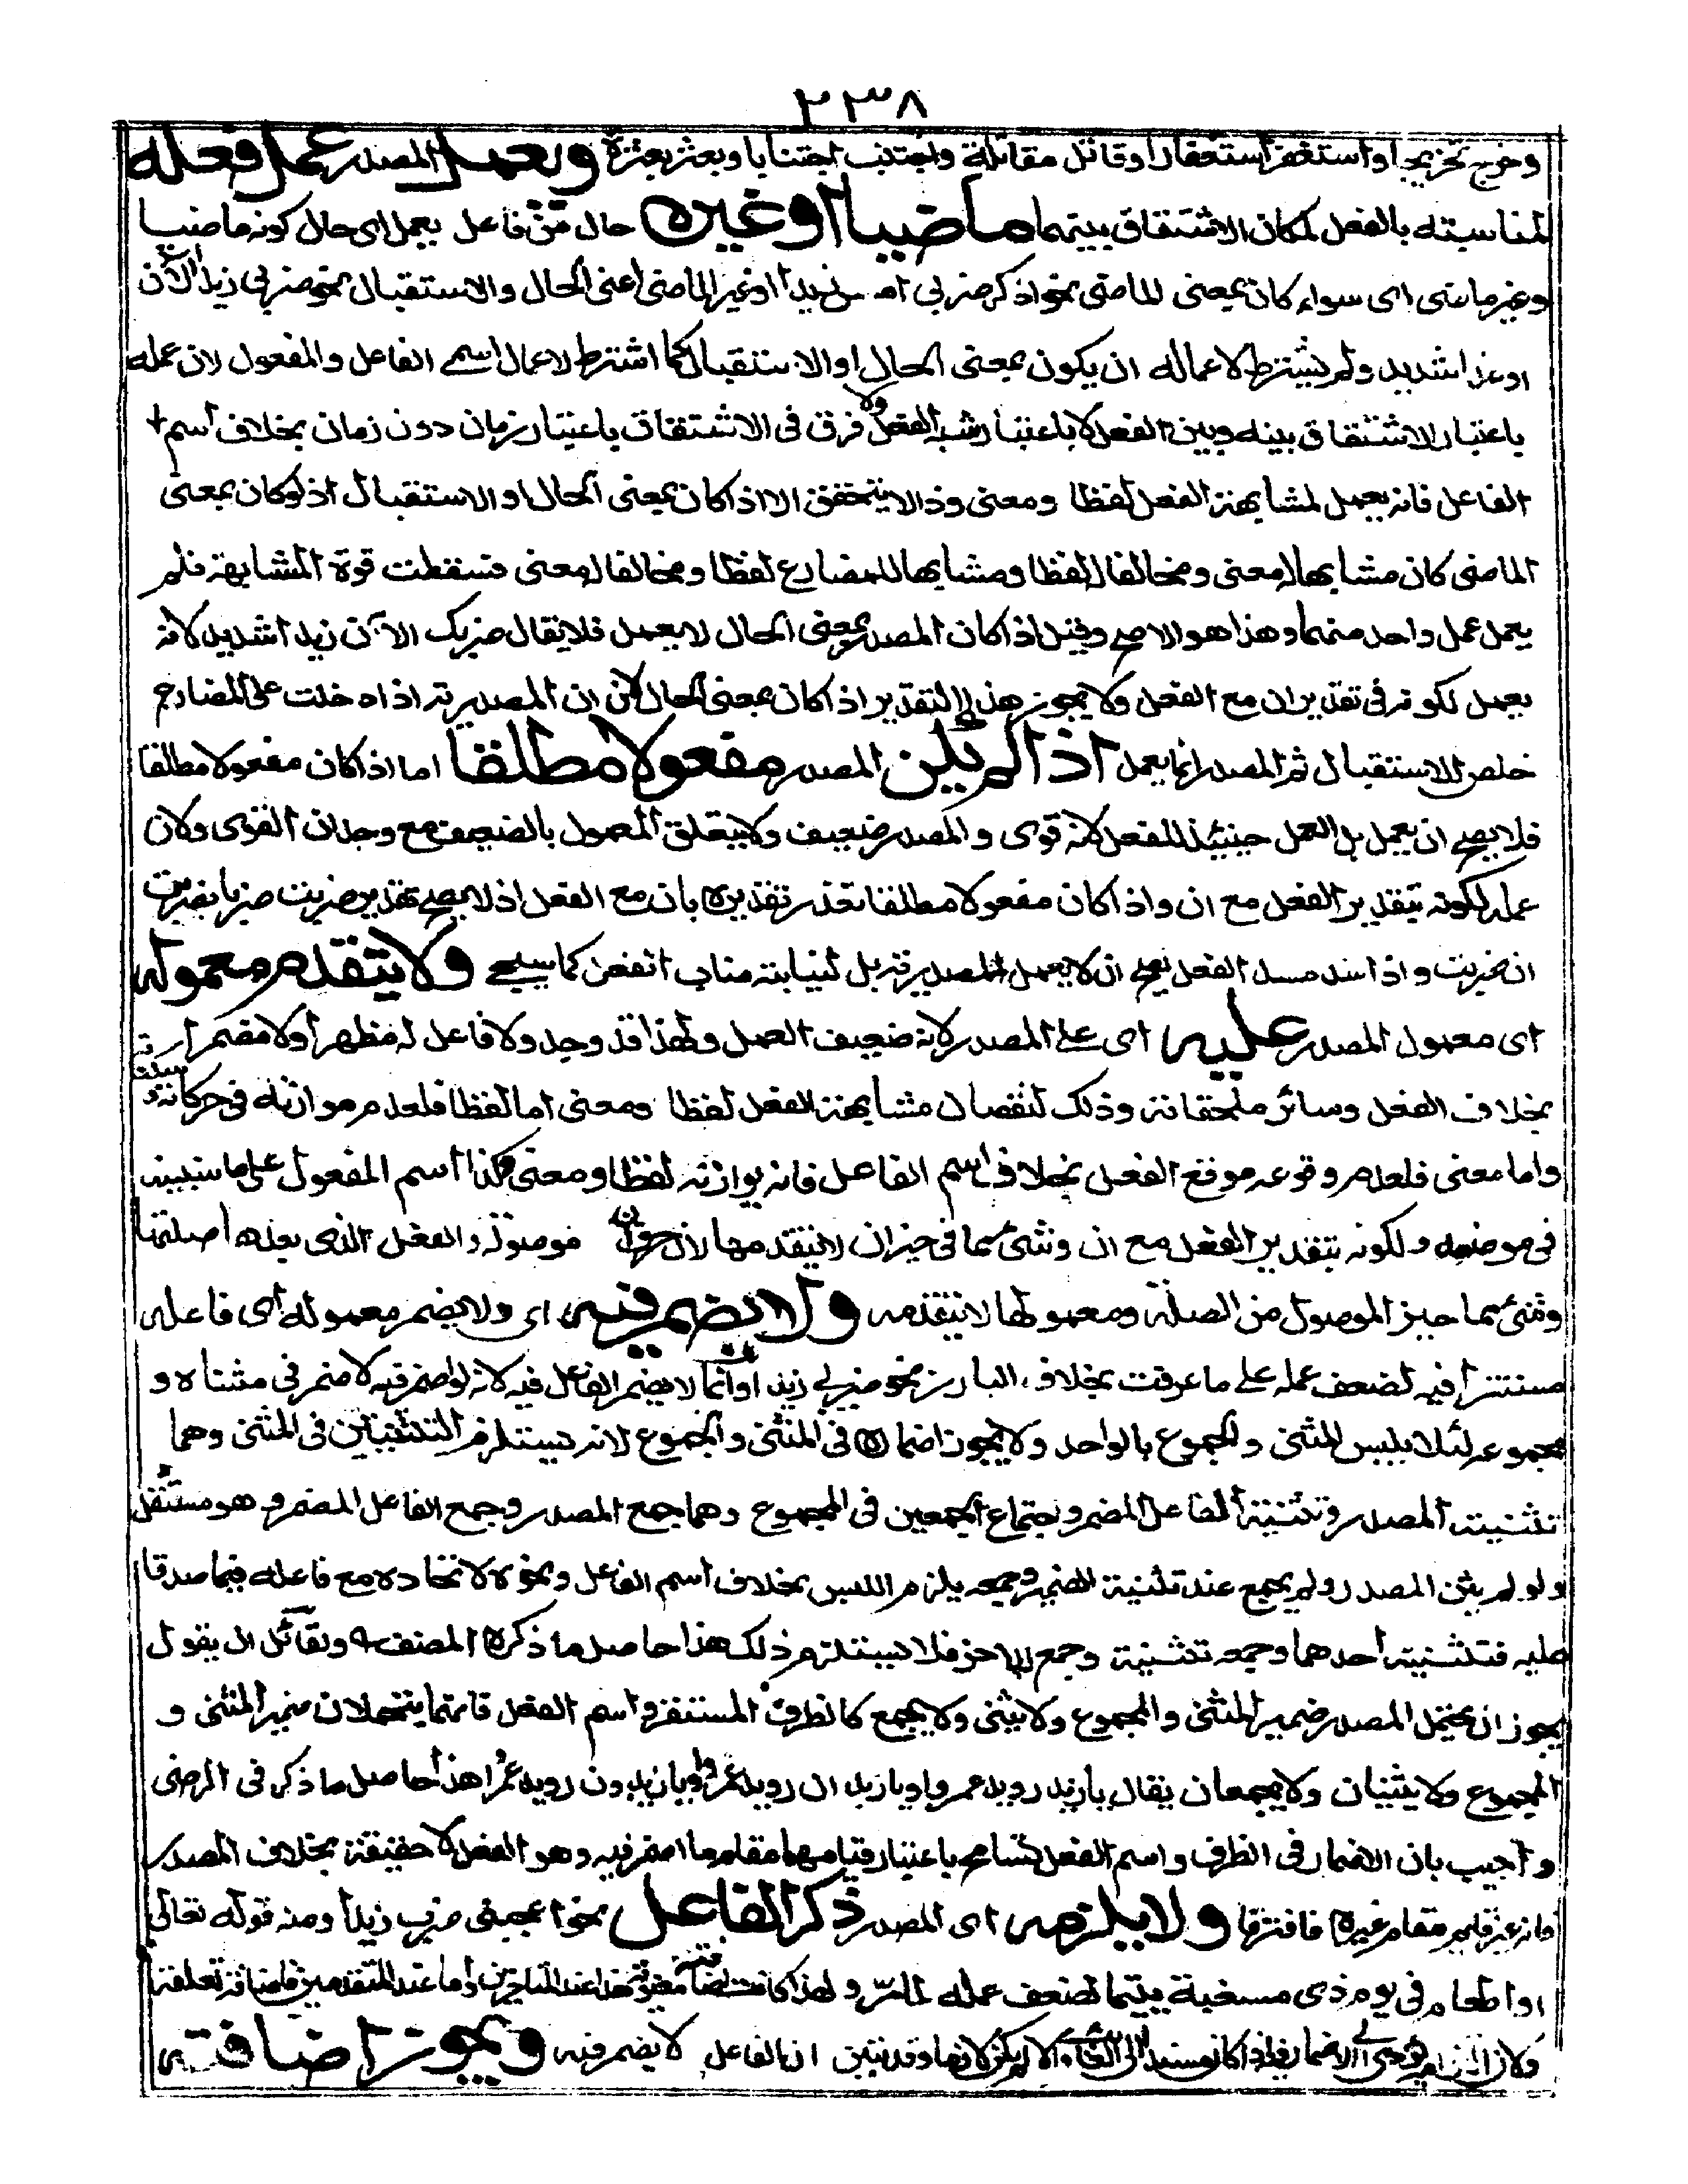 ٢٣٨
وخرج تخريجا واستغفر استغفارا وقاتل مقاتلة واجتنب اجتنابا وبعثر بعثرة ويعمل المصدر عمل فعله
لمناسبته بالفعل لمكان الاشتقاق بينهما ماضيا او غيره حال من فاعل يعمل اى حال كونه ماضيا
وغير ماضى اى سواء كان بمعنى الماضى نحو اذكر ضربى امس زيدا او غير الماضى اعنى الحال والاستقبال نحو ضربى زيدا الآن
او غدا شديد ولم يشترط لاعماله ان يكون بمعنى الحال او الاستقبال كما اشترط لاعمال اسمى الفاعل والمفعول لان عمله
باعتبار الاشتقاق بينه وبين الفعل لا باعتبار شبه الفعل ولا فرق فى الاشتقاق باعتبار زمان دون زمان بخلاف اسم
الفاعل فانه يعمل لمشابهة الفعل لفظا ومعنى وذا لا يتحقق الا اذا كان بمعنى الحال او الاستقبال اذ لو كان بمعنى
الماضى كان مشابها له معنى ومخالفا لفظا ومشابها للمضارع لفظا ومخالفا له معنى فسقطت قوة المشابهة فلم
يعمل عمل واحد منهما وهذا هو الاصح وقيل اذا كان المصدر بمعنى الحال لا يعمل فلا يقال ضربك الآن زيدا شديد لانه
يعمل لكونه فى تقدير ان مع الفعل ولا يجوز هذا التقدير اذا كان بمعنى الحال لان ان المصدرية اذا دخلت على المضارع
خلص للاستقبال ثم المصدر انما يعمل اذا لم يكن المصدر مفعولا مطلقا اما اذا كان مفعولا مطلقا
فلا يصح ان يعمل بل العمل حينئذ للفعل لانه قوى والمصدر ضعيف ولا يتعلق المعمول بالضعيف مع وجدان القوى ولان
عمله لكونه بتقدير الفعل مع ان واذا كان مفعولا مطلقا تعذر تقديره بان مع الفعل اذ لا يصح تقدير ضربت ضربا بضربت
ان ضربت واذا سد مسد الفعل يصح ان لا يعمل المصدرية بل لنيابته مناب الفعل كما سيجئ ولا يتقدم معموله
اى معمول المصدر عليه اى على المصدر لانه ضعيف العمل ولهذا قد وجد ولا فاعل له مظهرا ولا مضمرا
بخلاف الفعل وسائر ملحقاته وذلك لنقصان مشابهة الفعل لفظا ومعنى اما لفظا فلعدم موازنته فى حركاته وسكناته
واما معنى فلعدم وقوعه موقع الفعل بخلاف اسم الفاعل فانه يوازنه لفظا ومعنى وكذا اسم المفعول على ما سنبينه
فى موضعه ولكونه بتقدير الفعل مع ان وشئ مما فى حيز ان لا يتقدمها لان حرف ان موصولة والفعل الذى بعدها صلتها
وشئ مما حيز الموصول من الصلة ومعمولها لا يتقدمه ولا يضمر فيه اى ولا يضمر معموله اى فاعله
مستترا فيه لضعف عمله على ما عرفت بخلاف البارز نحو ضربى زيدا وانما لا يضمر الفاعل فيه لانه لو اضمر فيه لاضمر فى مثناه و
مجموعه لئلا يلبس المثنى والمجموع بالواحد ولا يجوز اضماره فى المثنى والمجموع لانه يستلزم التثنيتين فى المثنى وهما
تثنية المصدر وتثنية الفاعل المضمر واجتماع الجمعين فى المجموع وهما جمع المصدر وجمع الفاعل المضمر وهو مستثقل
ولو لم يثن المصدر ولم يجمع عند تثنية الضمير وجمعه يلزم اللبس بخلاف اسم الفاعل ونحوه لاتحاده مع فاعله فيما صدقا
عليه فتثنية احدهما وجمعه تثنية وجمع للآخر فلا يستلزم ذلك هذا حاصل ما ذكره المصنف ولقائل ان يقول
يجوز ان يحتمل المصدر ضمير المثنى والمجموع ولا يثنى ولا يجمع كالظرف المستقر واسم الفعل فانهما يتحملان ضمير المثنى و
المجموع ولا يثنيان ولا يجمعان يقال يا زيد رويد عمروا ويا زيدان رويد عمروا ويا زيدون رويد عمروا هذا حاصل ما ذكر فى الرضى
واجيب بان الاضمار فى الظرف واسم الفعل تسامح باعتبار قيامهما مقام ما اضمر فيه وهو الفعل لا حقيقة بخلاف المصدر
فانه غير قائم مقام غيره فافترقا ولا يلزم اى المصدر ذكر الفاعل نحو اعجبنى ضرب زيدا ومنه قوله تعالى
او اطعام فى يوم ذى مسغبة يتيما لضعف عمله لما مر ولهذا كانت عند المتأخرين واما عند المتقدمين
ان الفاعل لا يضمر فيه ويجوز اضافته